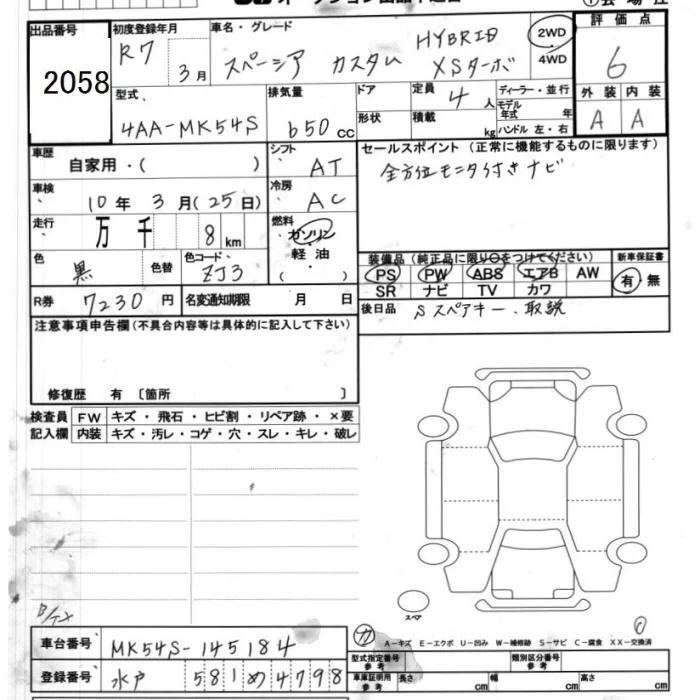 出品番号 2058
初度登録年月 R7 3月
車名・グレード スペーシア カスタム HYBRID XSターボ
2WD
4WD
評価点 6
外装 内装
A A
型式 4AA-MK54S
排気量 650 cc
ドア
形状
定員 4 人
積載 kg
ディーラー・並行
モデル年式 年
ハンドル 左・右
車歴 自家用・( )
シフト AT
セールスポイント (正常に機能するものに限ります)
全方位モニタ付きナビ
車検 10年 3月 (25日)
冷房 AC
走行 万 千 8 km
燃料 ガソリン
軽油
( ・ )
色 黒 色替
色コード ZJ3
装備品 (純正品に限り○をつけてください)
PS PW ABS エアB AW
SR ナビ TV カワ
新車保証書
有・無
R券 7230 円
名変通知期限 月 日
後日品 Sスペアキー、取説
注意事項申告欄(不具合内容等は具体的に記入して下さい)
修復歴 有 〔箇所 〕
検査員 FW キズ・飛石・ヒビ割・リペア跡・×要
記入欄 内装 キズ・汚レ・コゲ・穴・スレ・キレ・破レ
スペア
A-キズ E-エクボ U-凹み W-補修跡 S-サビ C-腐食 XX-交換済
車台番号 MK54S-145184
型式指定番号 参考
類別区分番号 参考
登録番号 水戸 581 め 4798
車車証明用 参考 長さ cm 幅 cm 高さ cm